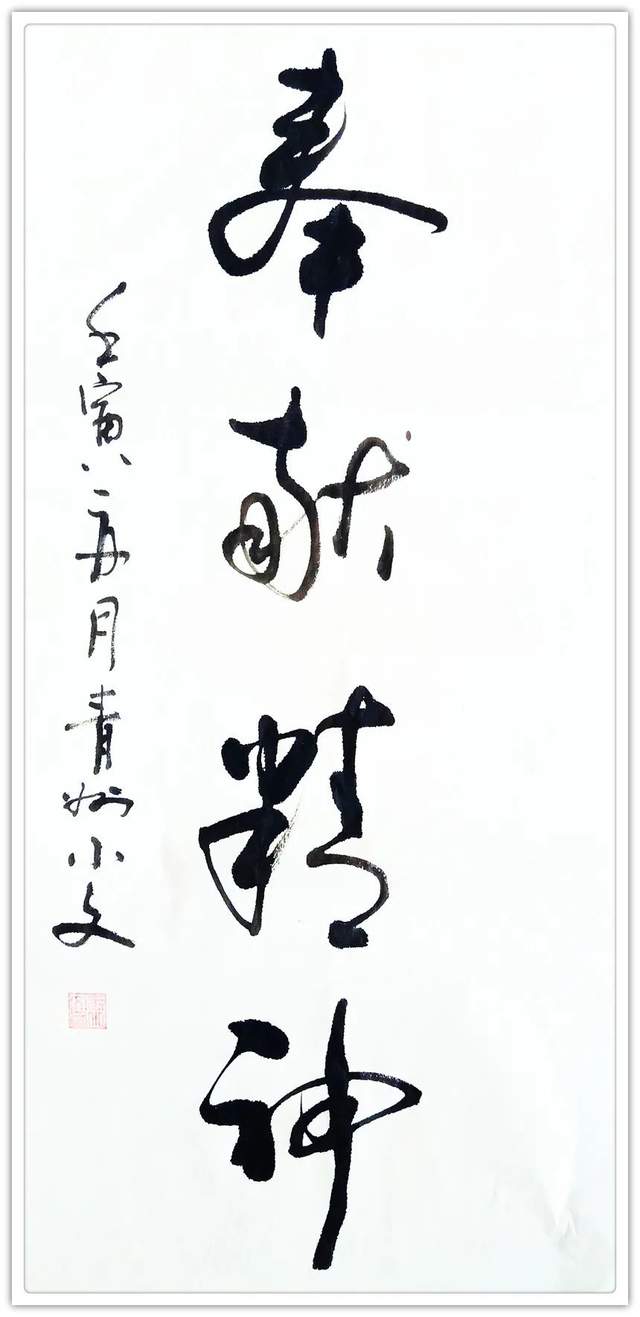 奉献精神
壬寅 月青州小文